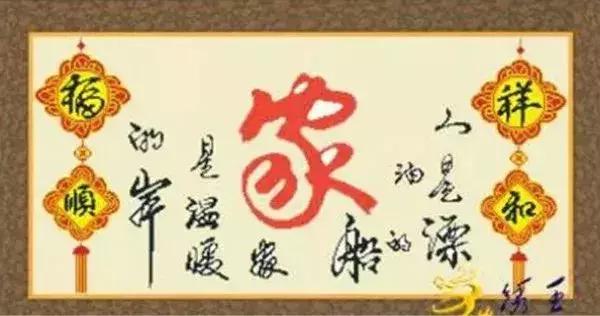 祥和
人是漂
泊的
船
家
家
是温暖
的岸
福順
绣王